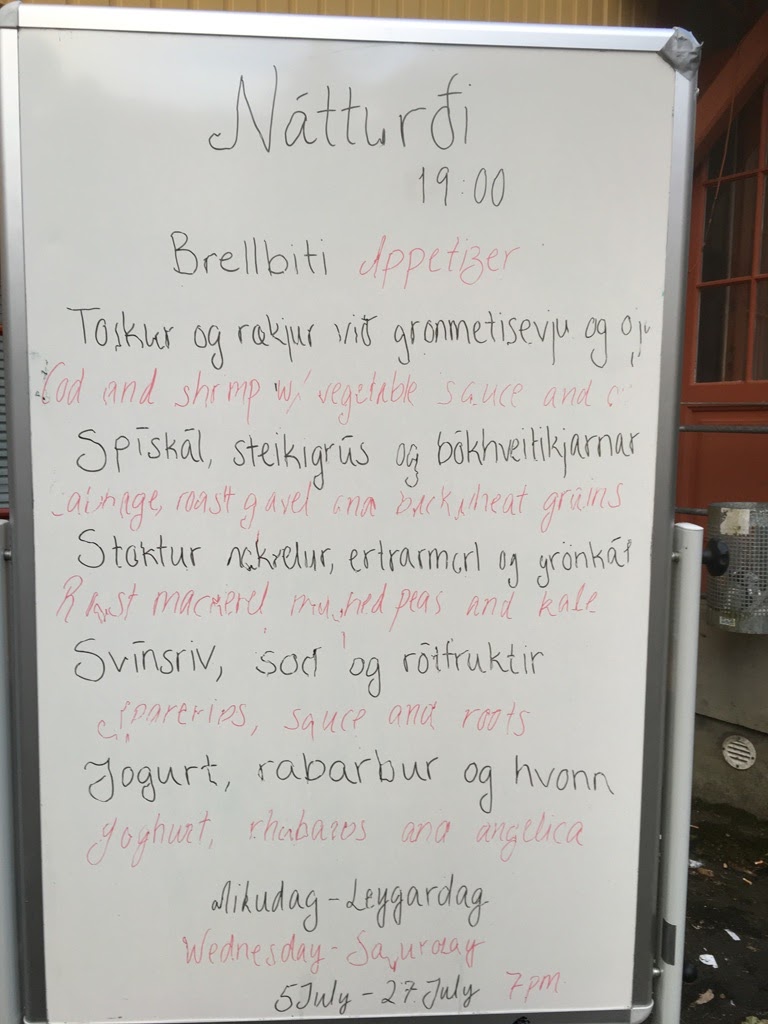 Nátturði
19:00
Brellbiti Appetizer
Toskur og rækjur við grønmetisevju og
Cod and shrimp w/ vegetable sauce and
Spískál, steikigrús og bókhveitikjarnar
roast gavel and buckwheat grains
Stoktur makrelur, ertrarmorl og grönkál
Roast mackerel mushed peas and kale
Svínsriv, sod og rótfruktir
spareribs, sauce and roots
Jogurt, rabarbur og hvonn
Yoghurt, and angelica
Mikudag - Leygardag
Wednesday - Saturday
5 July - 27 July 7 pm